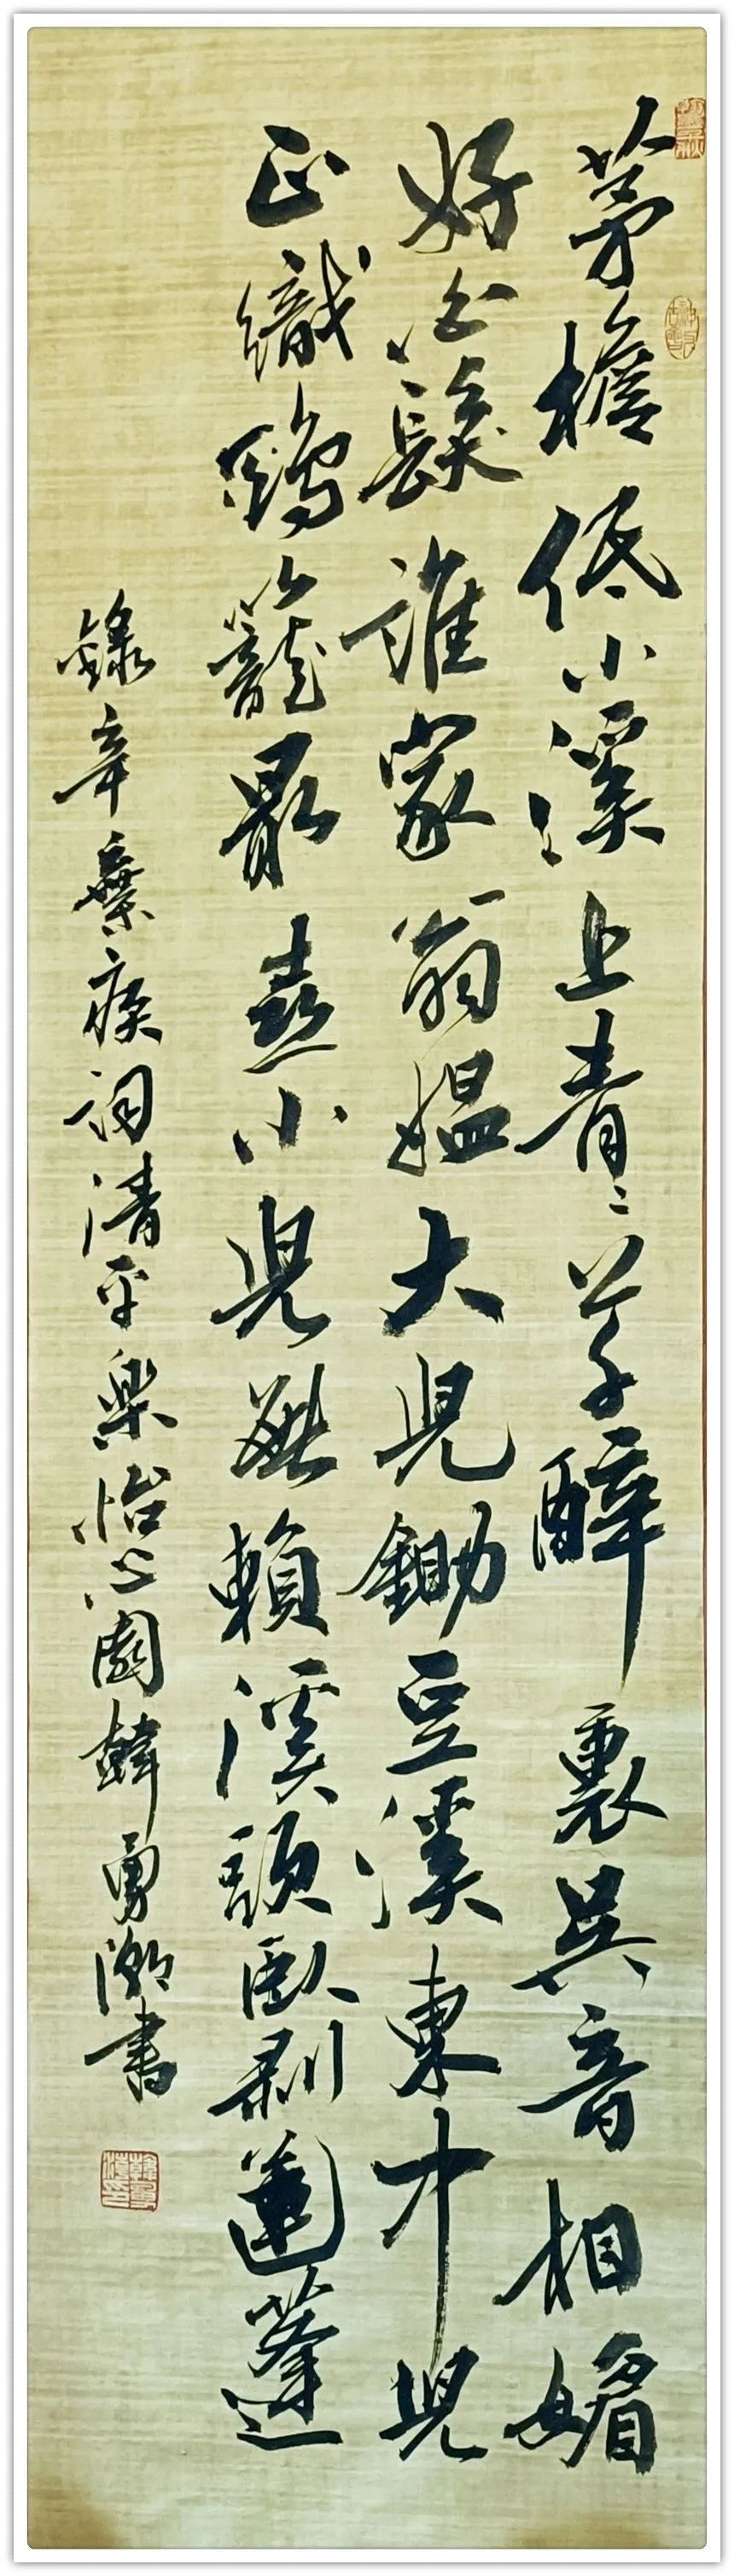 茅檐低小溪上青〻草醉裏吴音相媚
好白髮誰家翁媪大兒鋤豆溪東中兒
正織鷄籠最喜小兒無賴溪頭臥剥蓮蓬
錄辛棄疾詞清平樂怡心園韓勇潮書